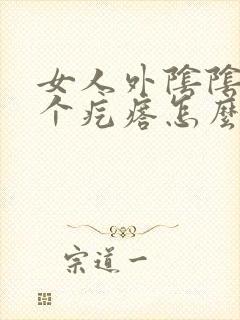 女人外陰陰
个疙瘩怎麼
宗道一